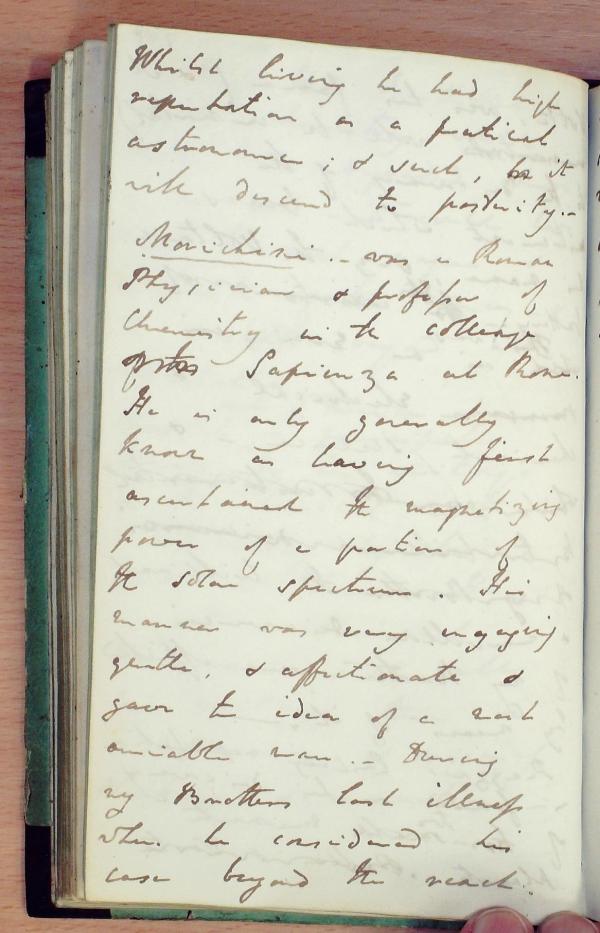 Whilst living he had high
reputation as a practical
astronomer; & such, as it
will descend to posterity.-
Morichini - was a Roman
Physician & professor of
Chemistry in the college
Sapienza at Rome.
He is only generally
known as having first
ascertained the magnetizing
power of a portion of
the solar spectrum. His
manner was very engaging
gentle, & affectionate &
gave the idea of a most
amiable man. - During
my Brothers last illness
when he considered his
case beyond the reach